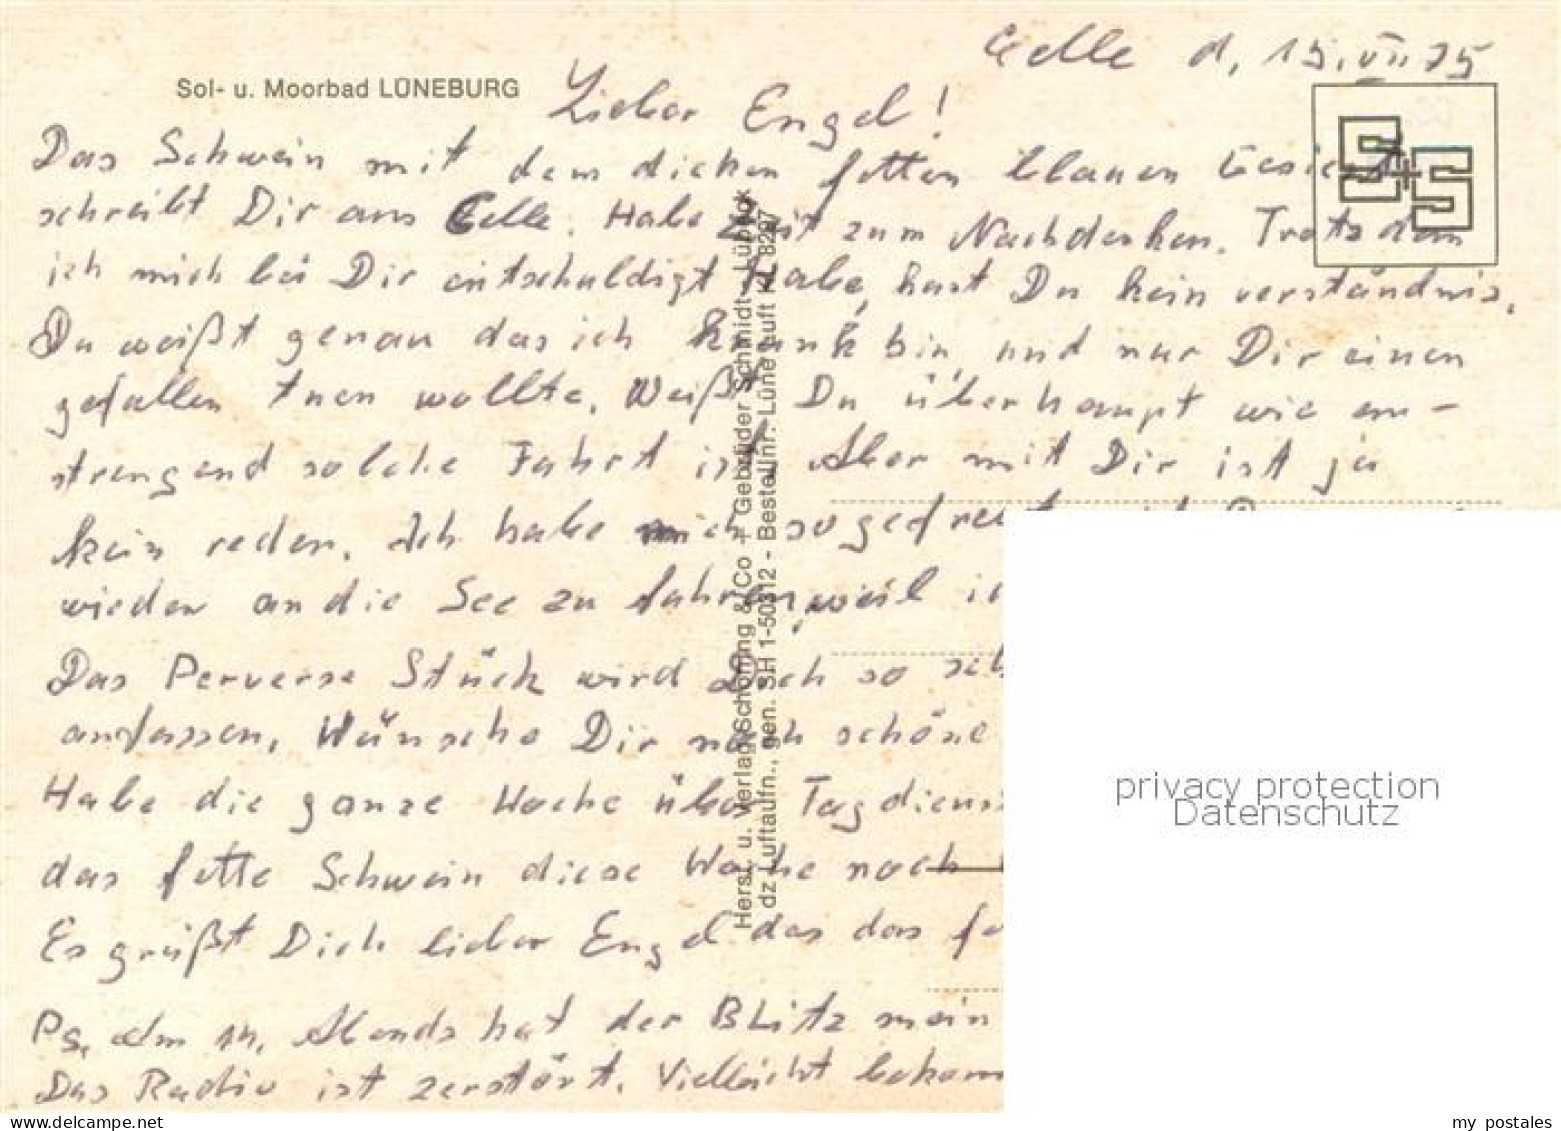 Celle d. 15.VII.75
Sol- u. Moorbad LÜNEBURG
Lieber Engel!
Das Schwein mit dem dicken fetten blauen Gesicht
schreibt Dir aus Celle. Habe Zeit zum Nachdenken. Trotzdem
ich mich bei Dir entschuldigt Habe, hast Du kein verständnis.
Du weißt genau das ich krank bin, und nur Dir einen
gefallen tuen wollte. Weißt Du überhaupt wie an-
strengend solche Fahrt ist. Aber mit Dir ist ja
kein reden. Ich habe mich so gefreut
wieder an die See zu fahren, weil
Das Perverse Stück wird Dich so
anfassen. Wünsche Dir noch schöne
Habe die ganze Woche über Tagdienst
das fette Schwein diese Woche noch
Es grüßt Dich lieber Engel das das
Ps. Am 14. Abends hat der Blitz mein
Das Radio ist zerstört. Vielleicht bekom
Herst. u. Verlag Schöning & Co + Gebrüder Schmidt - Lübeck
dz Luftaufn., gen. SH 1-50312 - Bestellnr.: Lüne Luft
S+S
privacy protection
Datenschutz
my postales